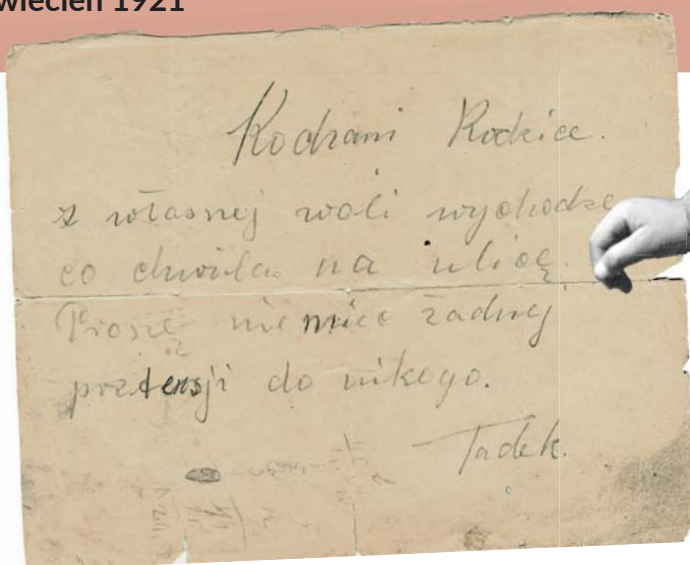 wiecień 1921
Kochani Rodzice.
z własnej woli wychodzę
co chwila na ulicę.
Proszę nie mieć żadnej
pretensji do nikogo.
Tadek.